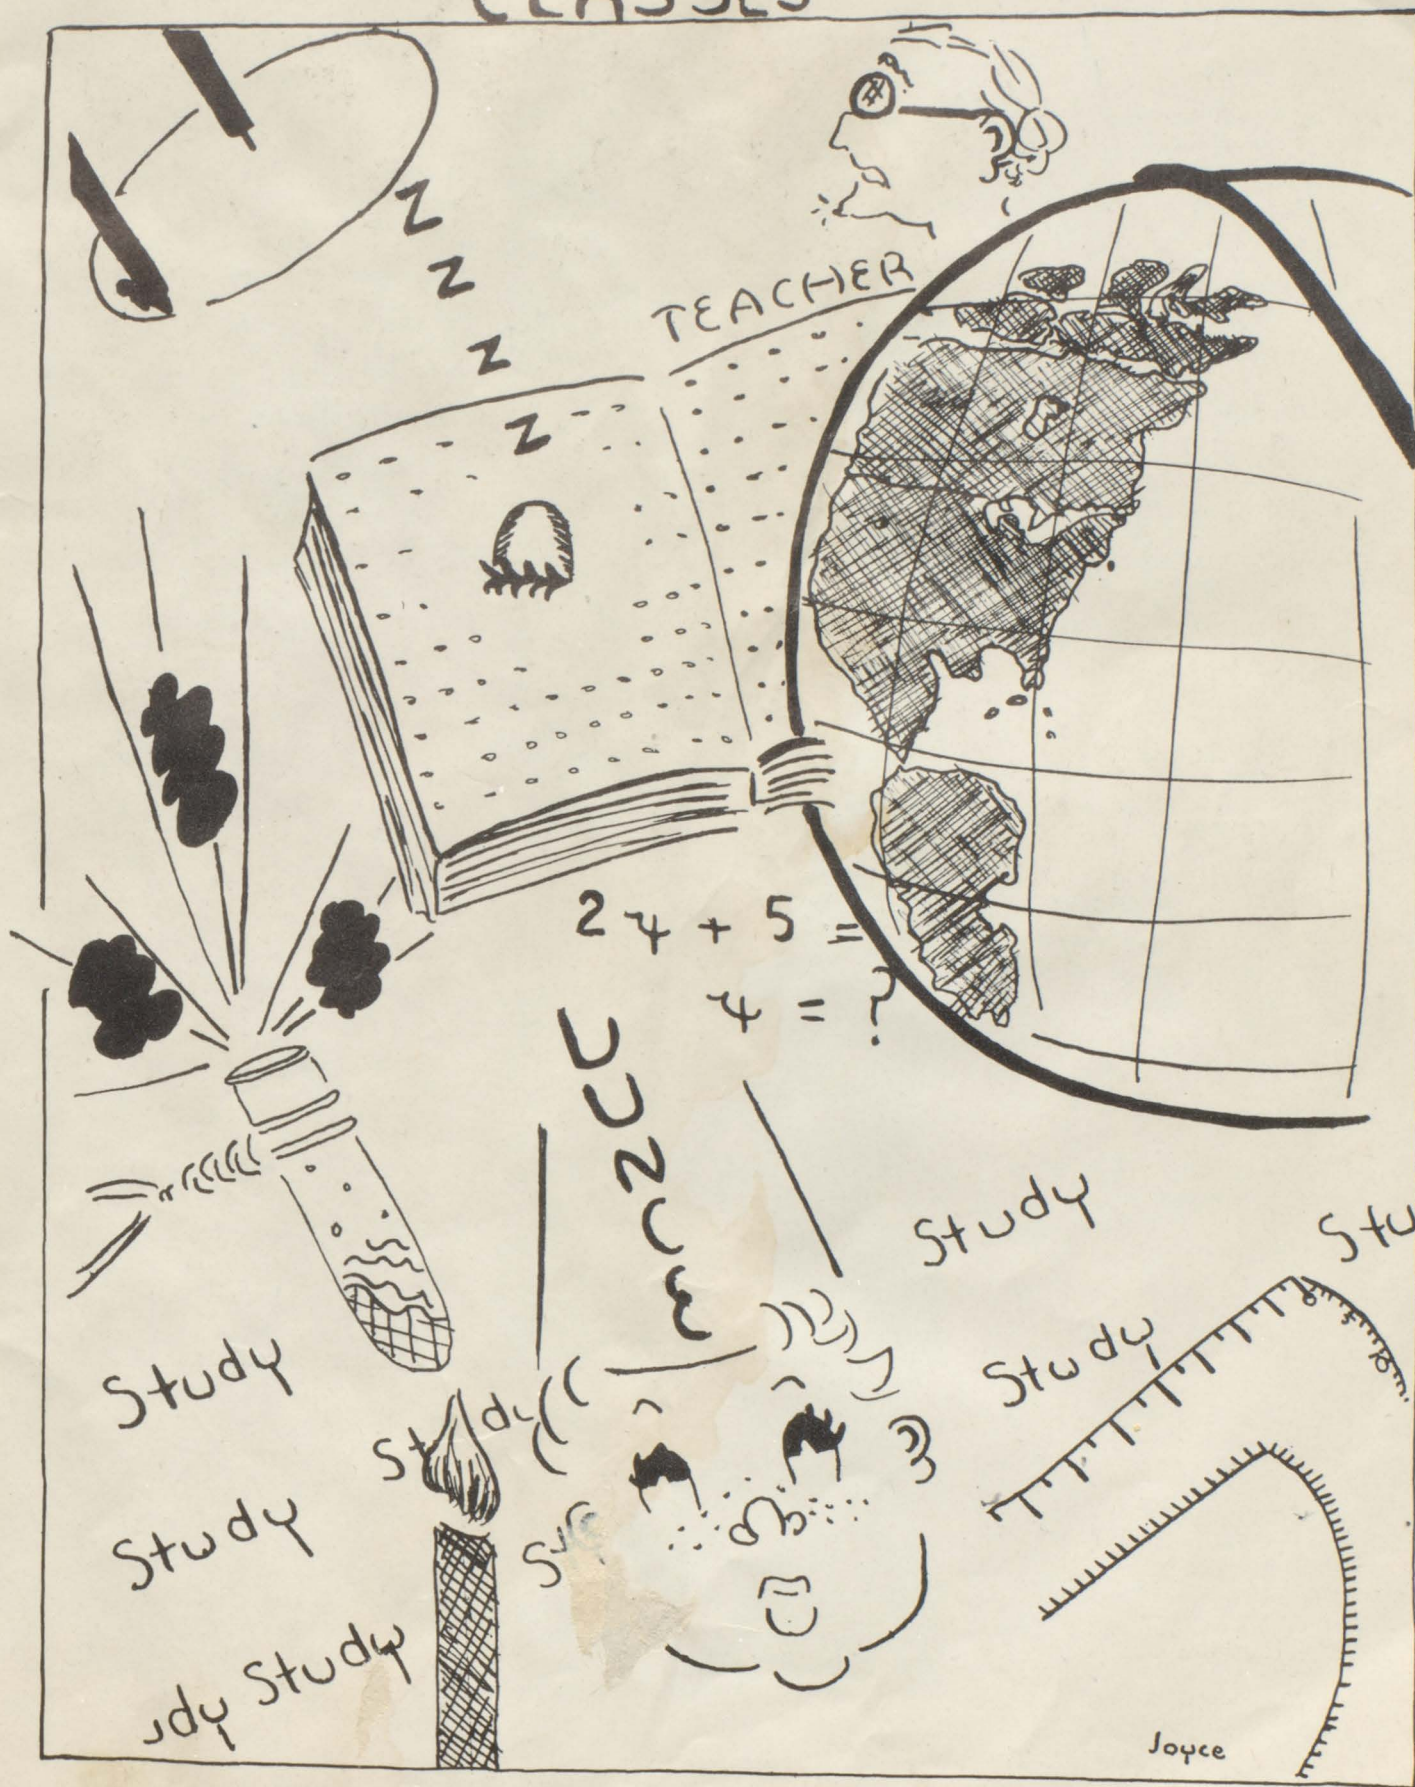 CLASSES
Z
Z
Z
Z
TEACHER
2x + 5 =
x = ?
DUNCE
Study
Stu
Study
Study
0 5 10
St dy
Study
St
udy Study
Joyce